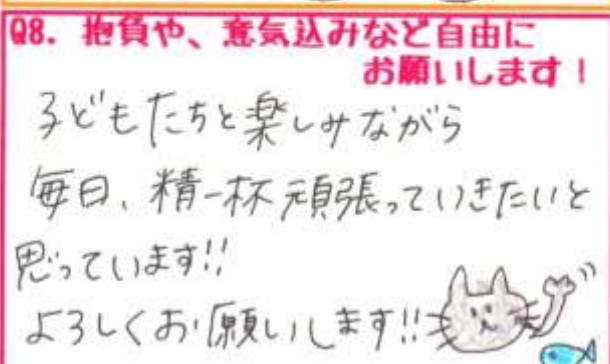 Q8. 抱負や、意気込みなど自由に
お願いします！
子どもたちと楽しみながら
毎日、精一杯頑張っていきたいと
思っています!!
よろしくお願いします!!